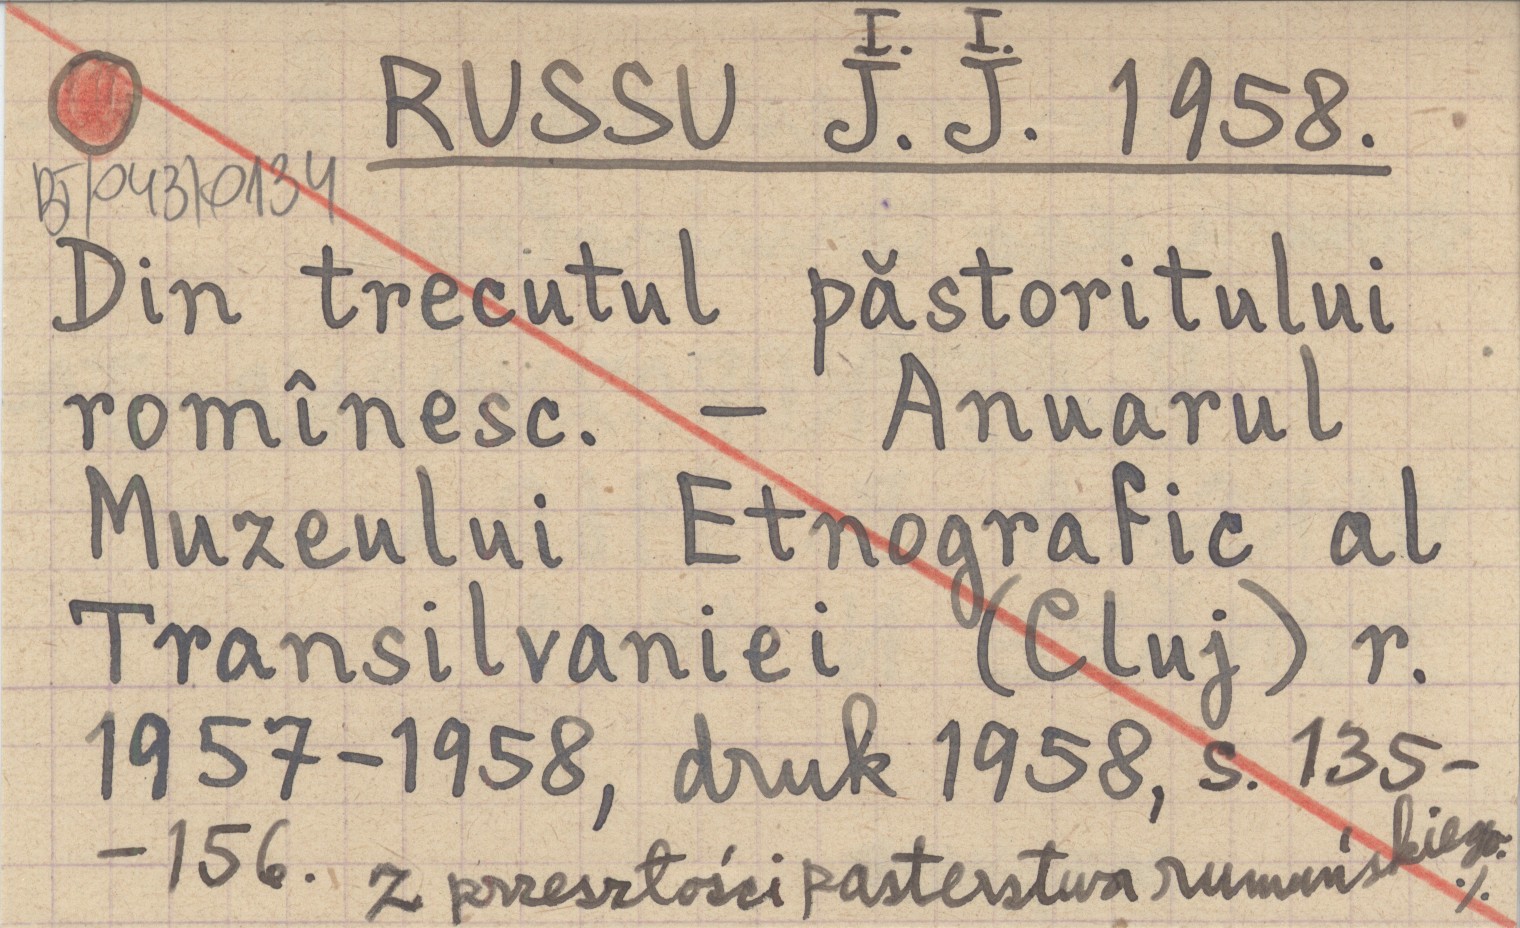 I. I.
RUSSU J. J. 1958.
BJ/043/0134
Din trecutul păstoritului
romînesc. – Anuarul
Muzeului Etnografic al
Transilvaniei (Cluj) r.
1957-1958, druk 1958, s. 135-
-156. z przeszłości pasterstwa rumuńskiego.
./.